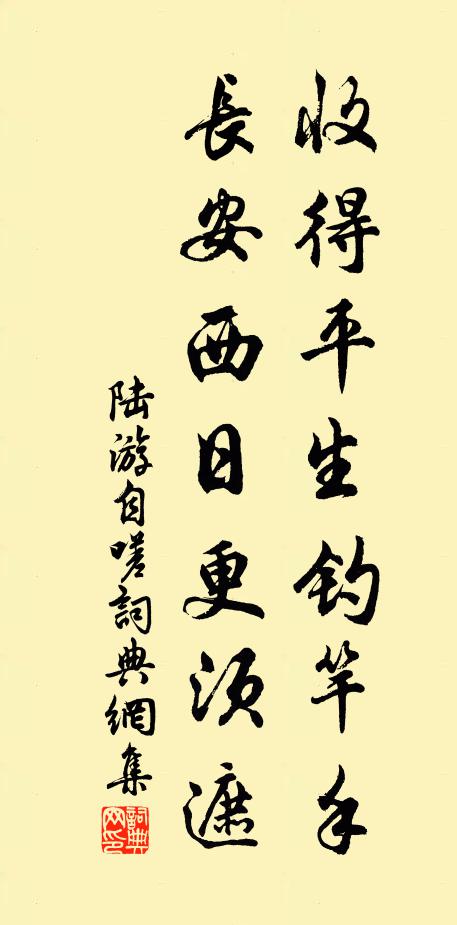 收得平生钓竿手
長安西日更須遮
陆游自嗟詞典網集
詞典网印